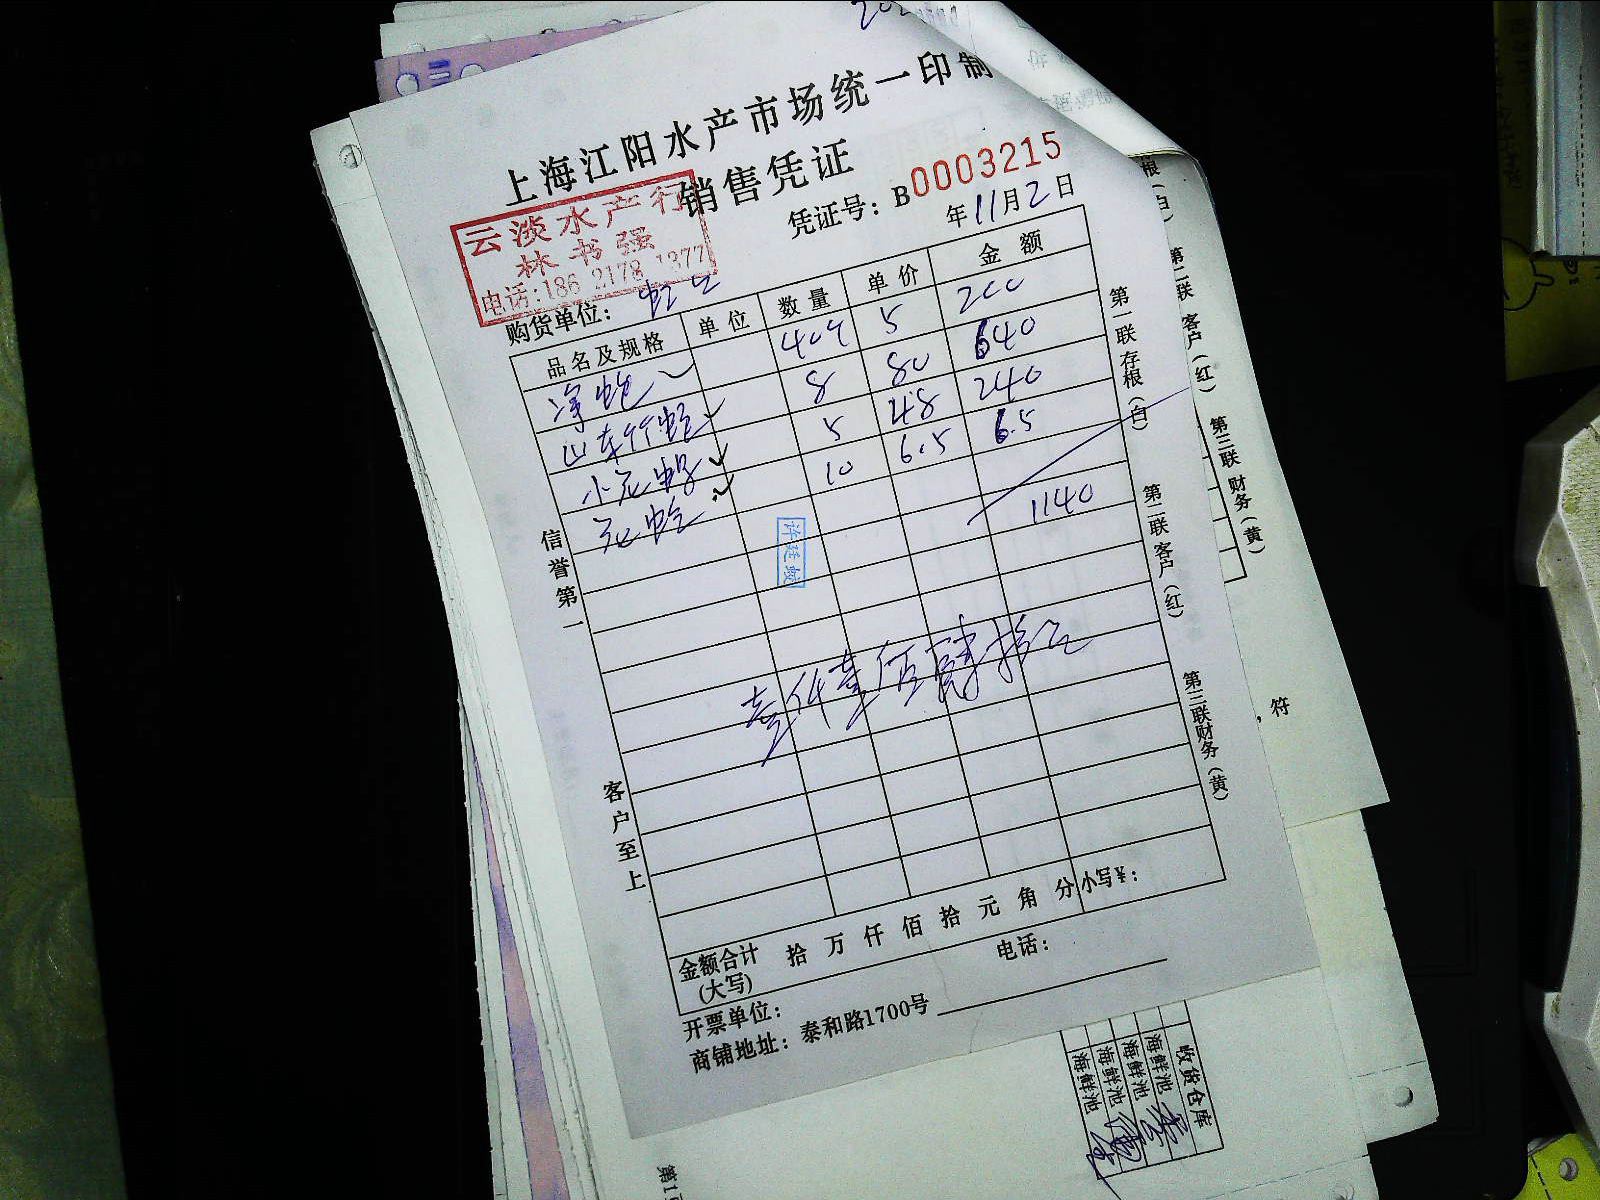 上海江阳水产市场统一印制
销售凭证
云淡水产行
林书强
电话:186 2178 1377
凭证号: B0003215
年11月2日
购货单位:
品名及规格 单位 数量 单价 金额
5 200
8 80 640
5 48 240
10 6.5 65
1140
信誉第一
客户至上
壹仟壹佰肆拾元
金额合计(大写) 拾 万 仟 佰 拾 元 角 分 小写¥:
开票单位: 电话:
商铺地址: 泰和路1700号
第一联 存根(白) 第二联 客户(红) 第三联 财务(黄)
第二联 客户(红) 第三联 财务(黄)
,符
收货仓库
海鲜池
海鲜池
海鲜池
海鲜池